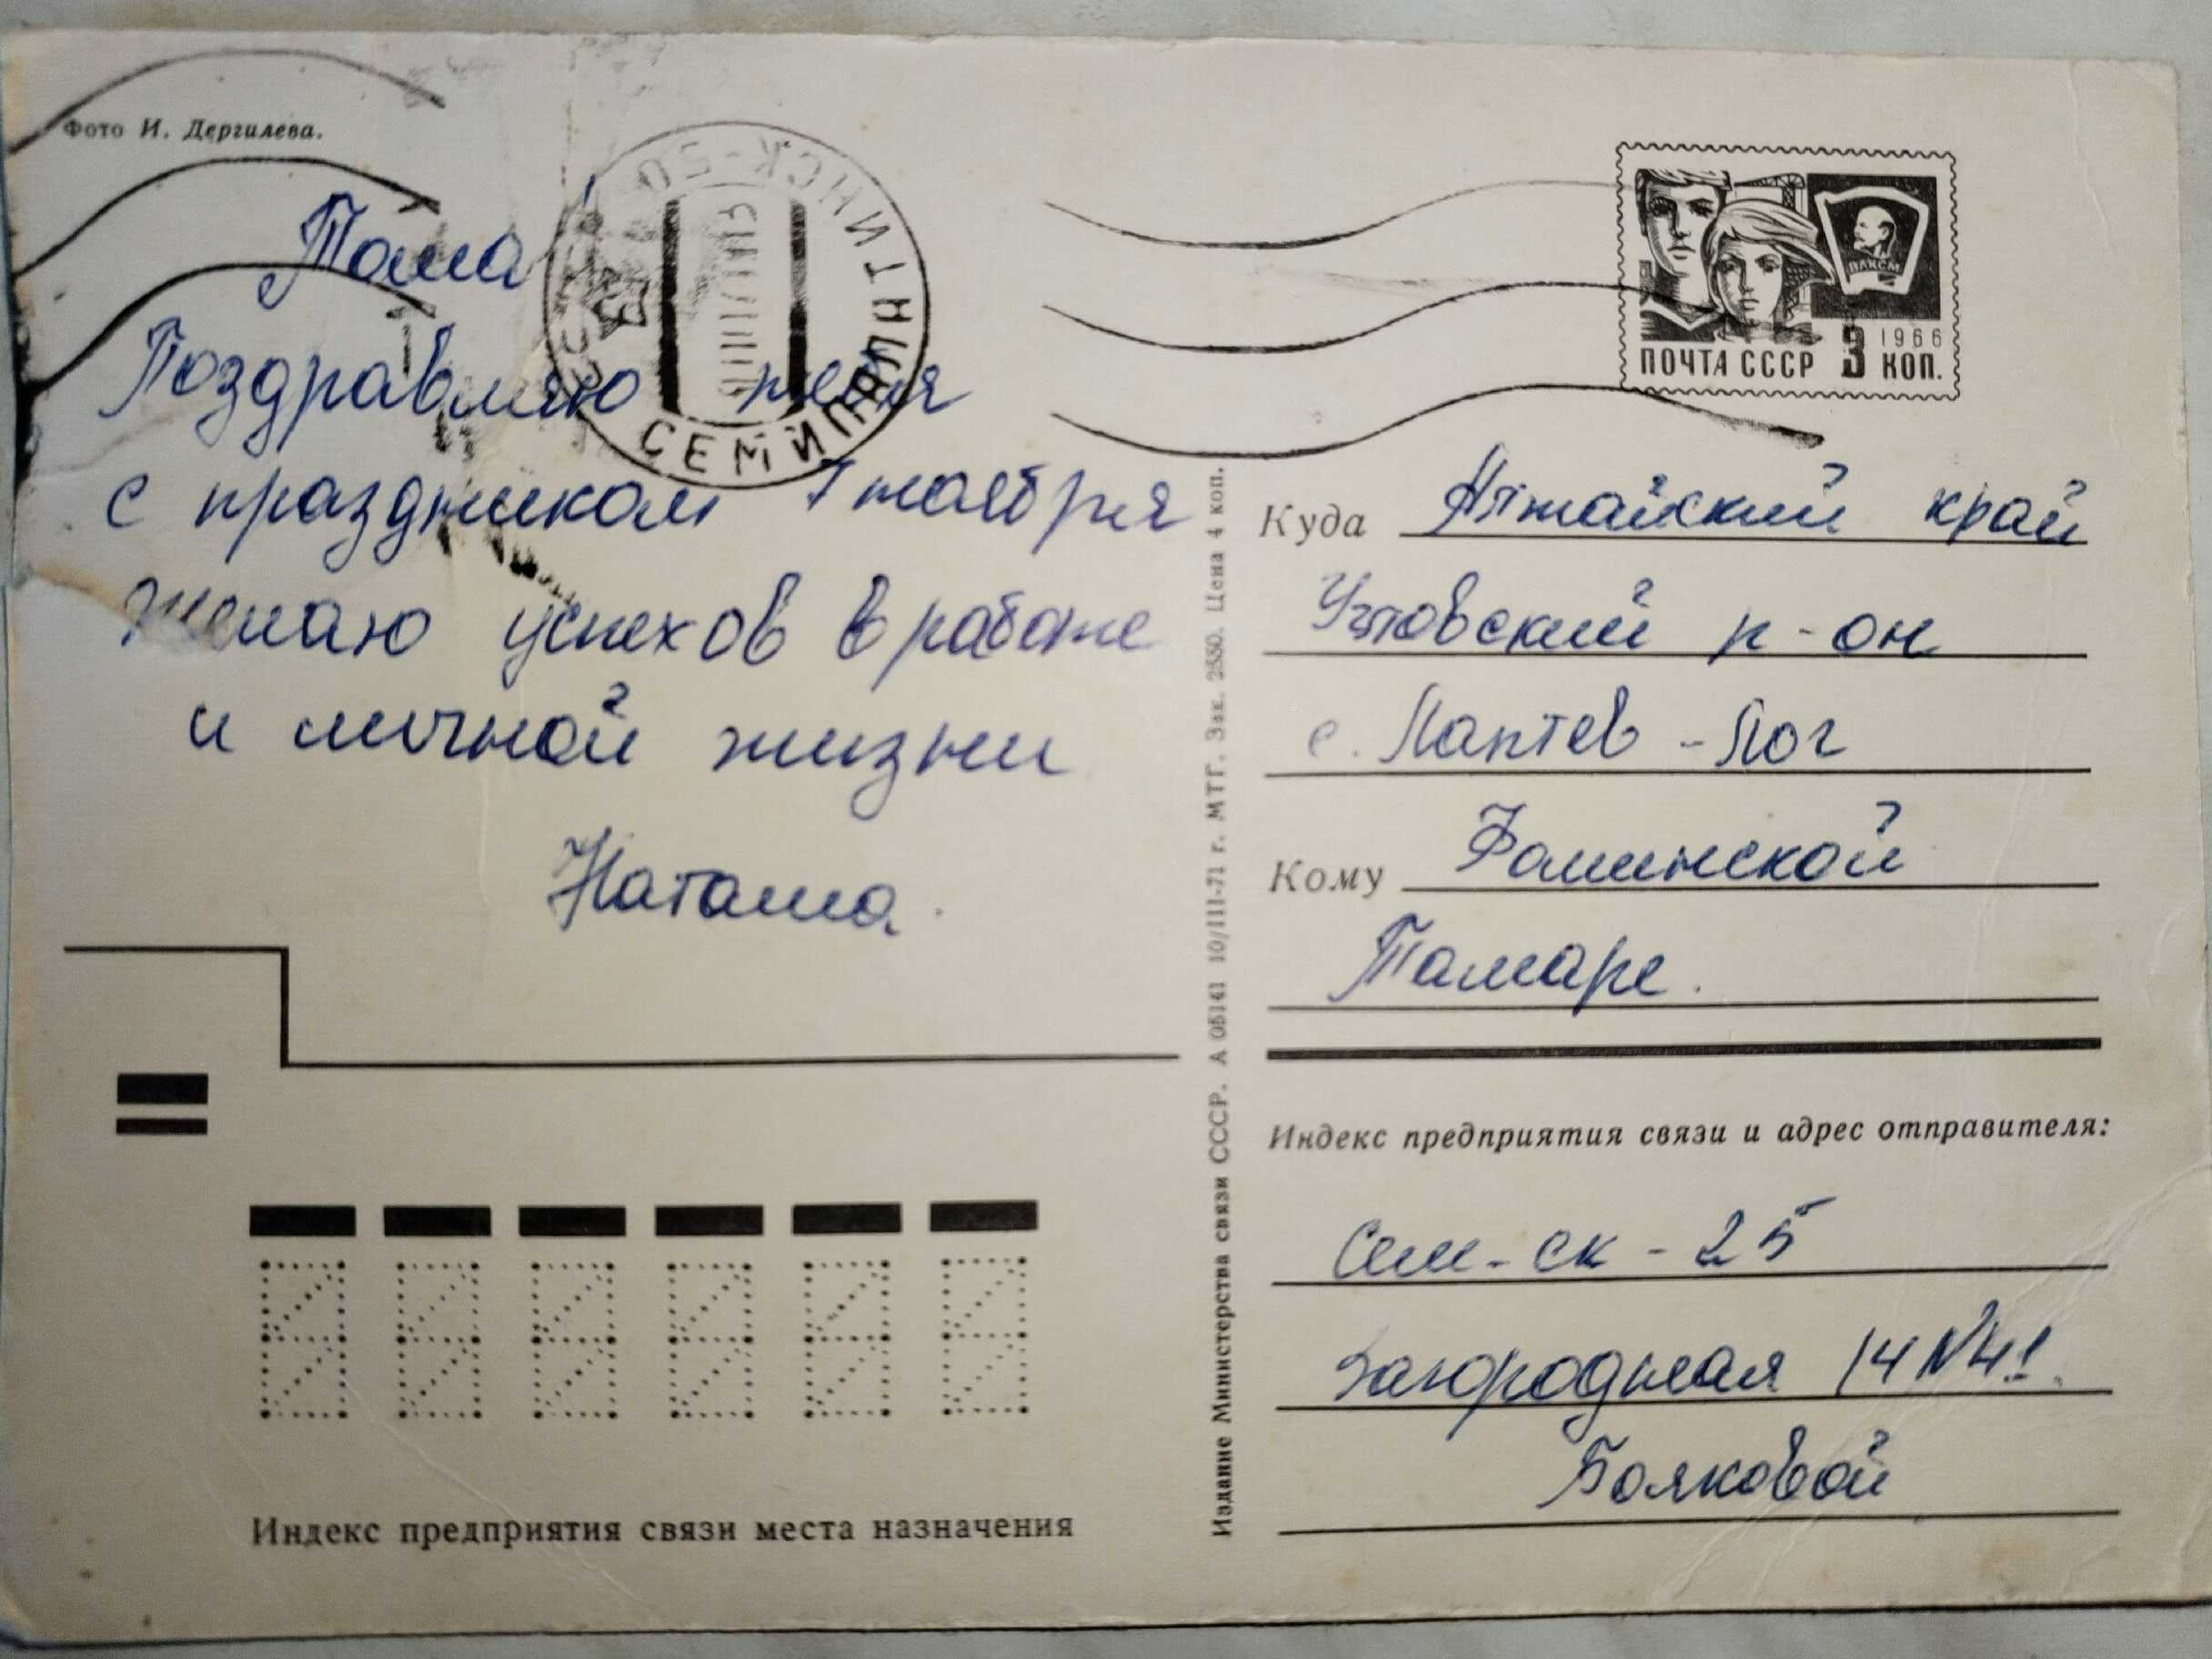 Фото И. Дергилева.
Тома!
Поздравляю тебя
с праздником 7 ноября
Желаю успехов в работе
и личной жизни
Наташа.
СЕМИПАЛАТИНСК-50
СССР
ВЛКСМ
1966
ПОЧТА СССР 3 КОП.
Куда Алтайский край
Угловский р-он
с. Лаптев-Лог
Кому Фоминской
Тамаре.
Индекс предприятия связи и адрес отправителя:
Сем-ск-25
Загородная 14
Бояковой
Индекс предприятия связи места назначения
Издание Министерства связи СССР. А 05141 10/III-71 г. МТГ. Зак. 2550. Цена 4 коп.